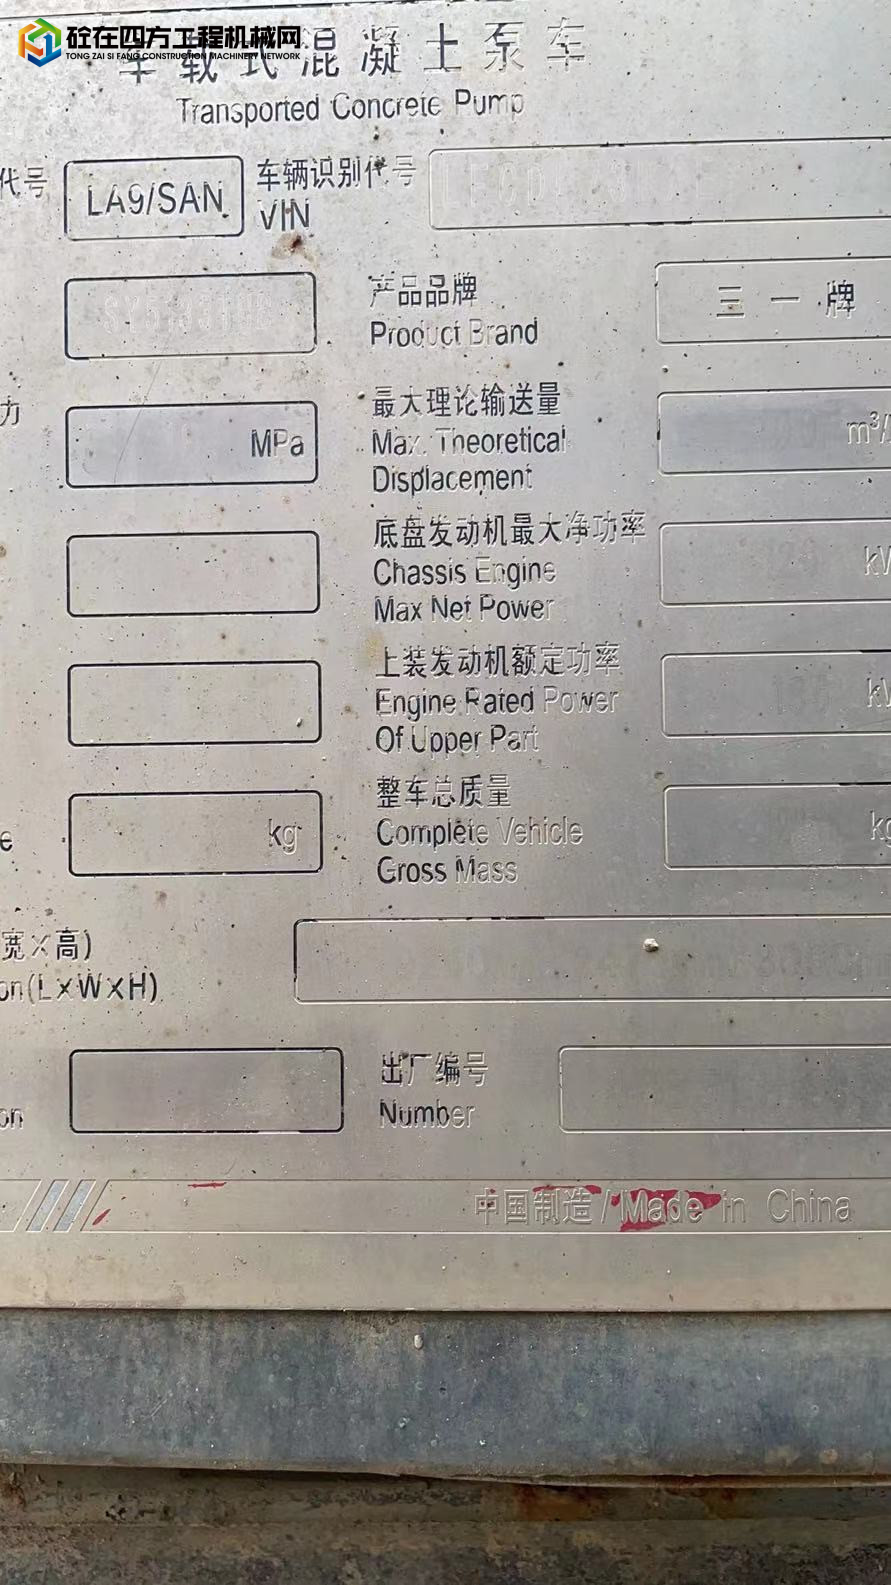 砼在四方工程机械网
TONG ZAI SI FANG CONSTRUCTION MACHINERY NETWORK
车载式混凝土泵车
Transported Concrete Pump
代号
LA9/SAN
车辆识别代号
VIN
产品品牌
Product Brand
三一牌
力
MPa
最大理论输送量
Max. Theoretical
Displacement
m³/
底盘发动机最大净功率
Chassis Engine
Max Net Power
kW
上装发动机额定功率
Engine Rated Power
Of Upper Part
kW
e
kg
整车总质量
Complete Vehicle
Gross Mass
kg
宽×高)
on(L×W×H)
on
出厂编号
Number
中国制造/Made in China